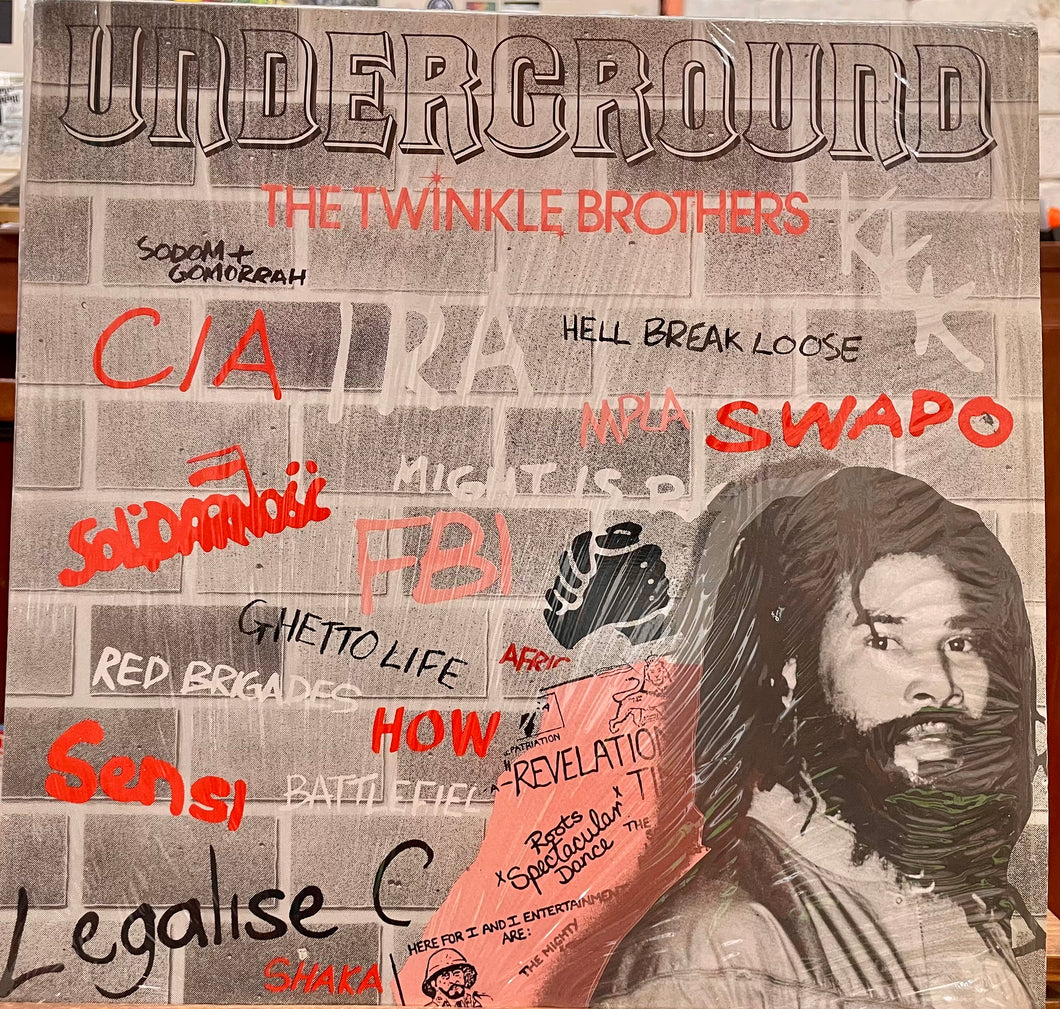 UNDERGROUND
THE TWINKLE BROTHERS
SODOM +
GOMORRAH
KKK
CIA
IRA
HELL BREAK LOOSE
MPLA
SWAPO
MIGHT IS R
SOLIDARNOŚĆ
FBI
GHETTO LIFE
AFRIC
RED BRIGADES
HOW
PATRIATION
-REVELATION
TI
Sensi
BATTLEFIEL
Roots
x Spectacular x
Dance
THE
Legalise C
HERE FOR I AND I ENTERTAINMENT
ARE:
THE MIGHTY
SHAKA